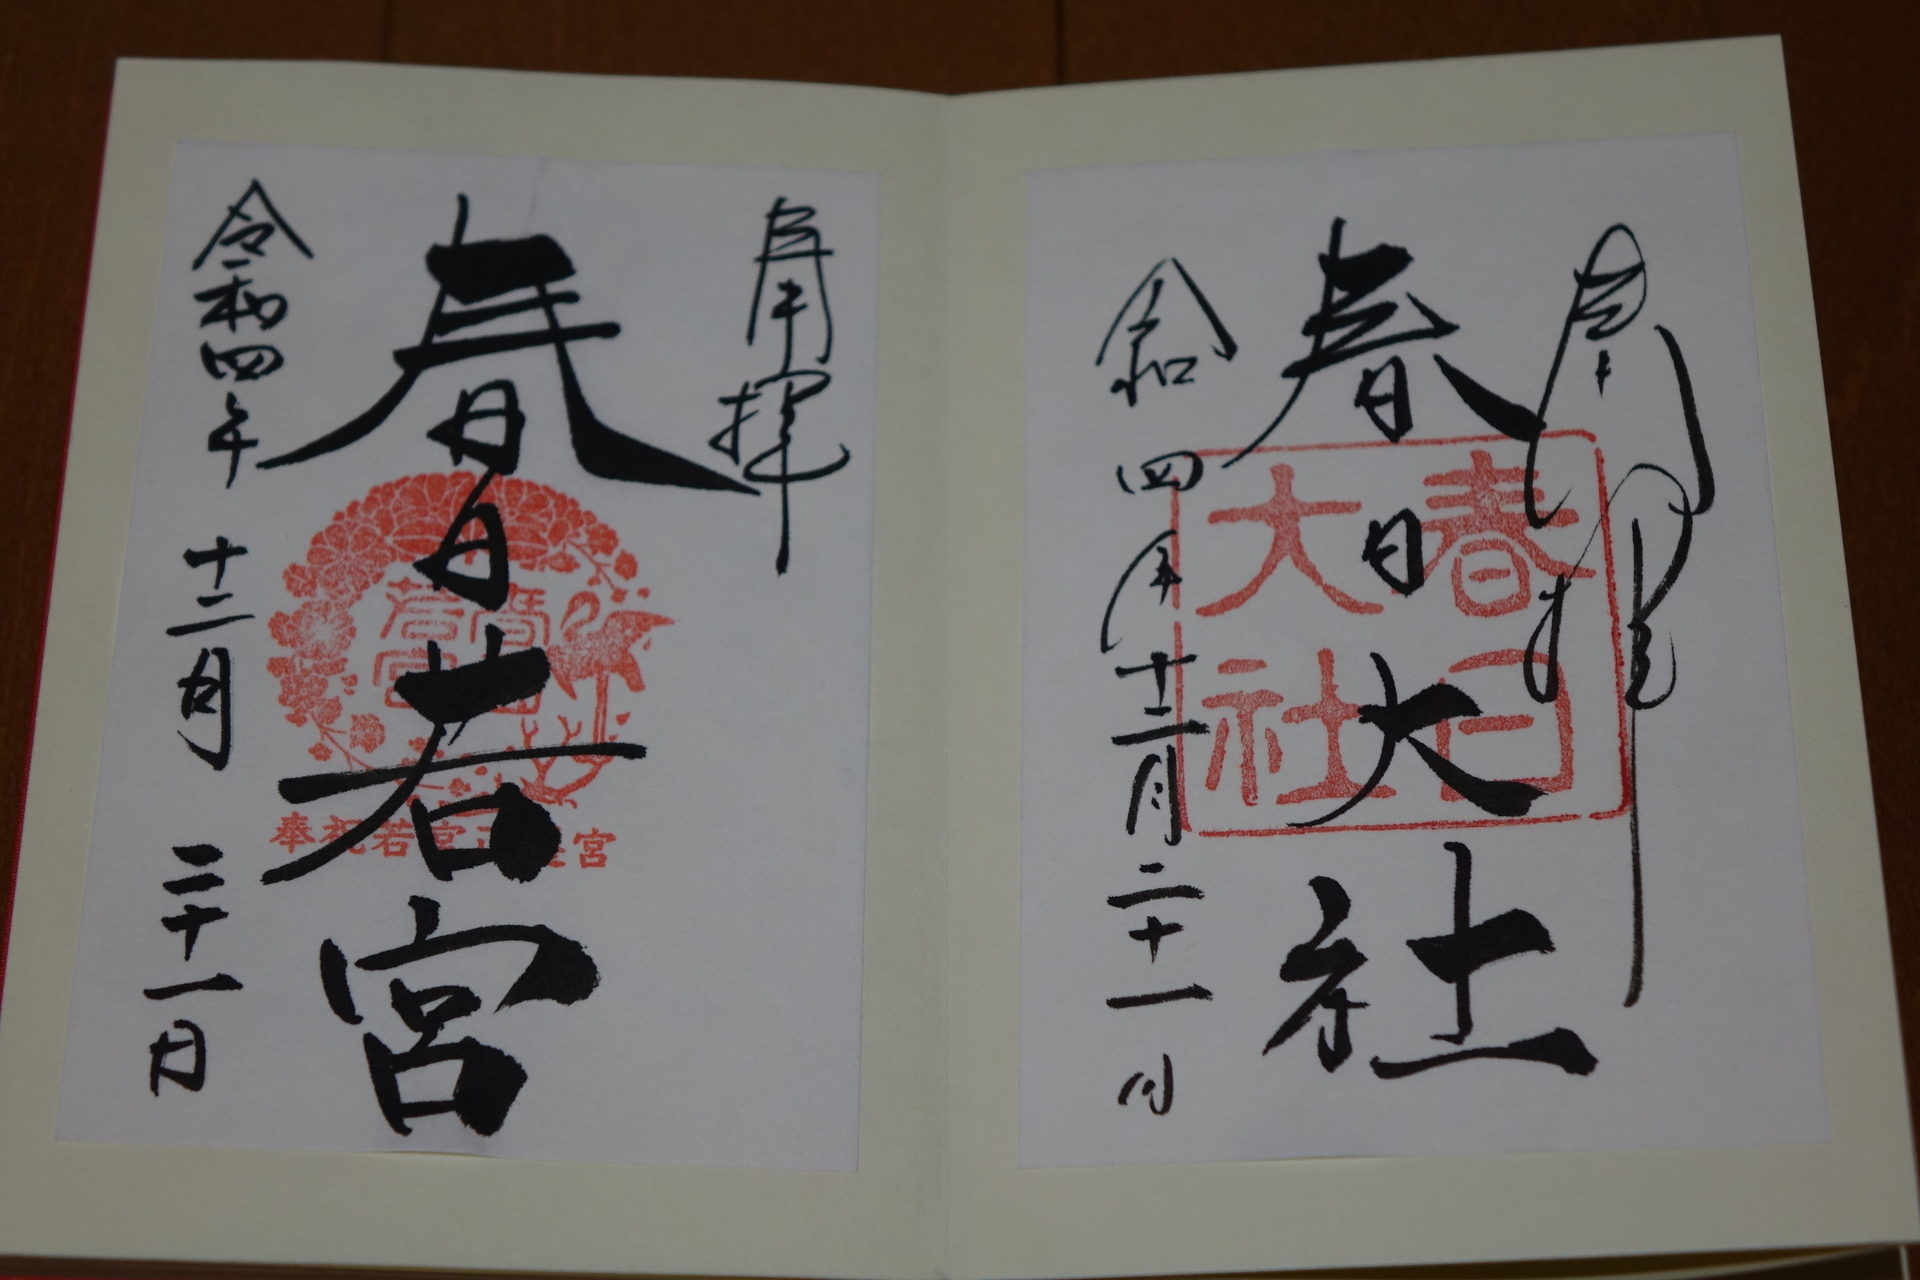 奉拝
春日大社
春日
大社
令和四年十二月二十一日
奉拝
春日若宮
春日
若宮
奉祝若宮正遷宮
令和四年十二月二十一日